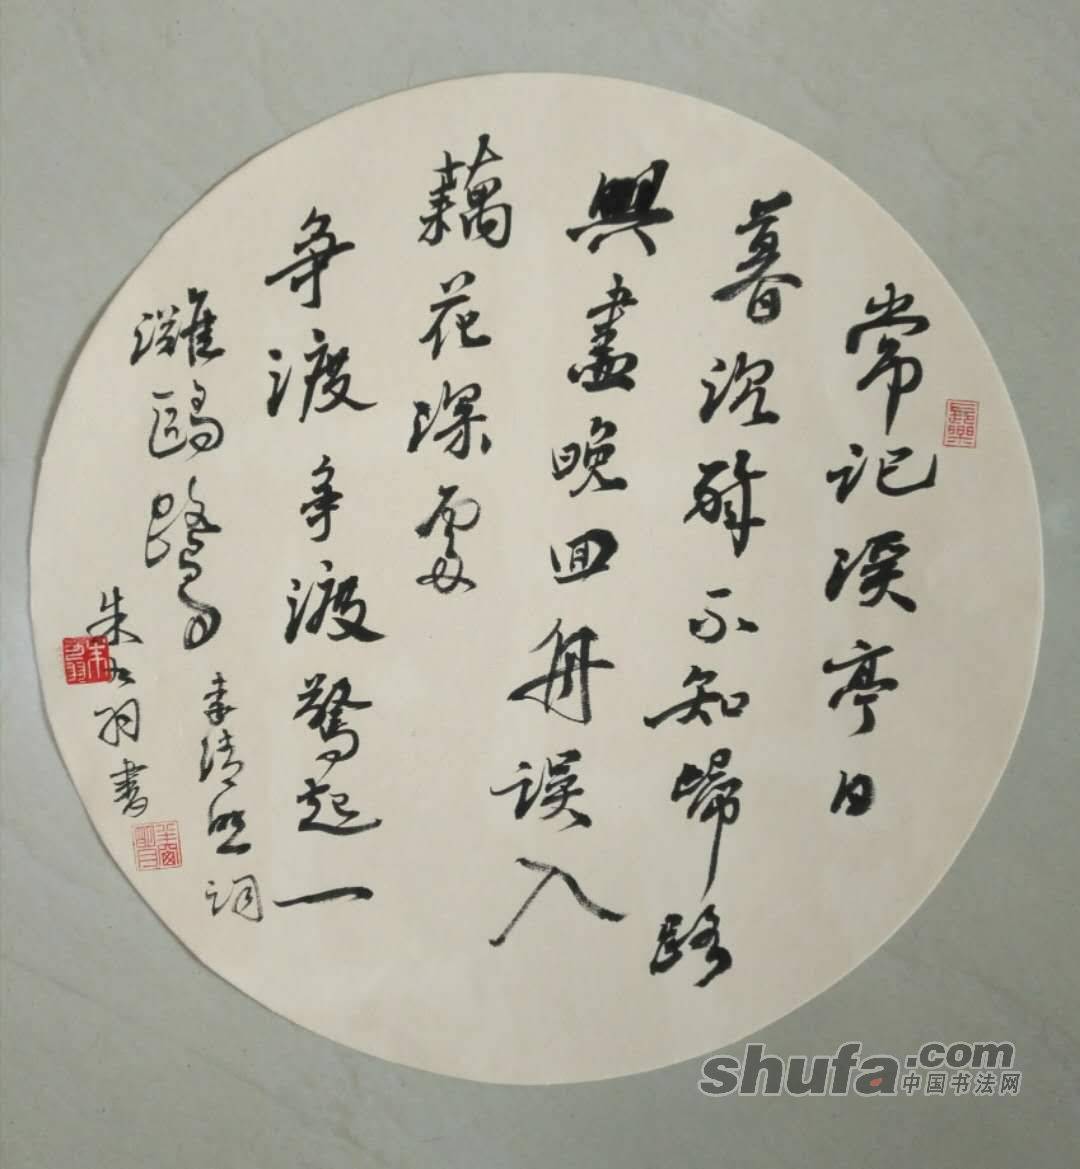 常记溪亭日
暮沉醉不知歸路
興盡晚回舟误入
藕花深處
争渡争渡驚起一
灘鷗鷺
李清照词
朱羽書
shufa.com
中国书法网